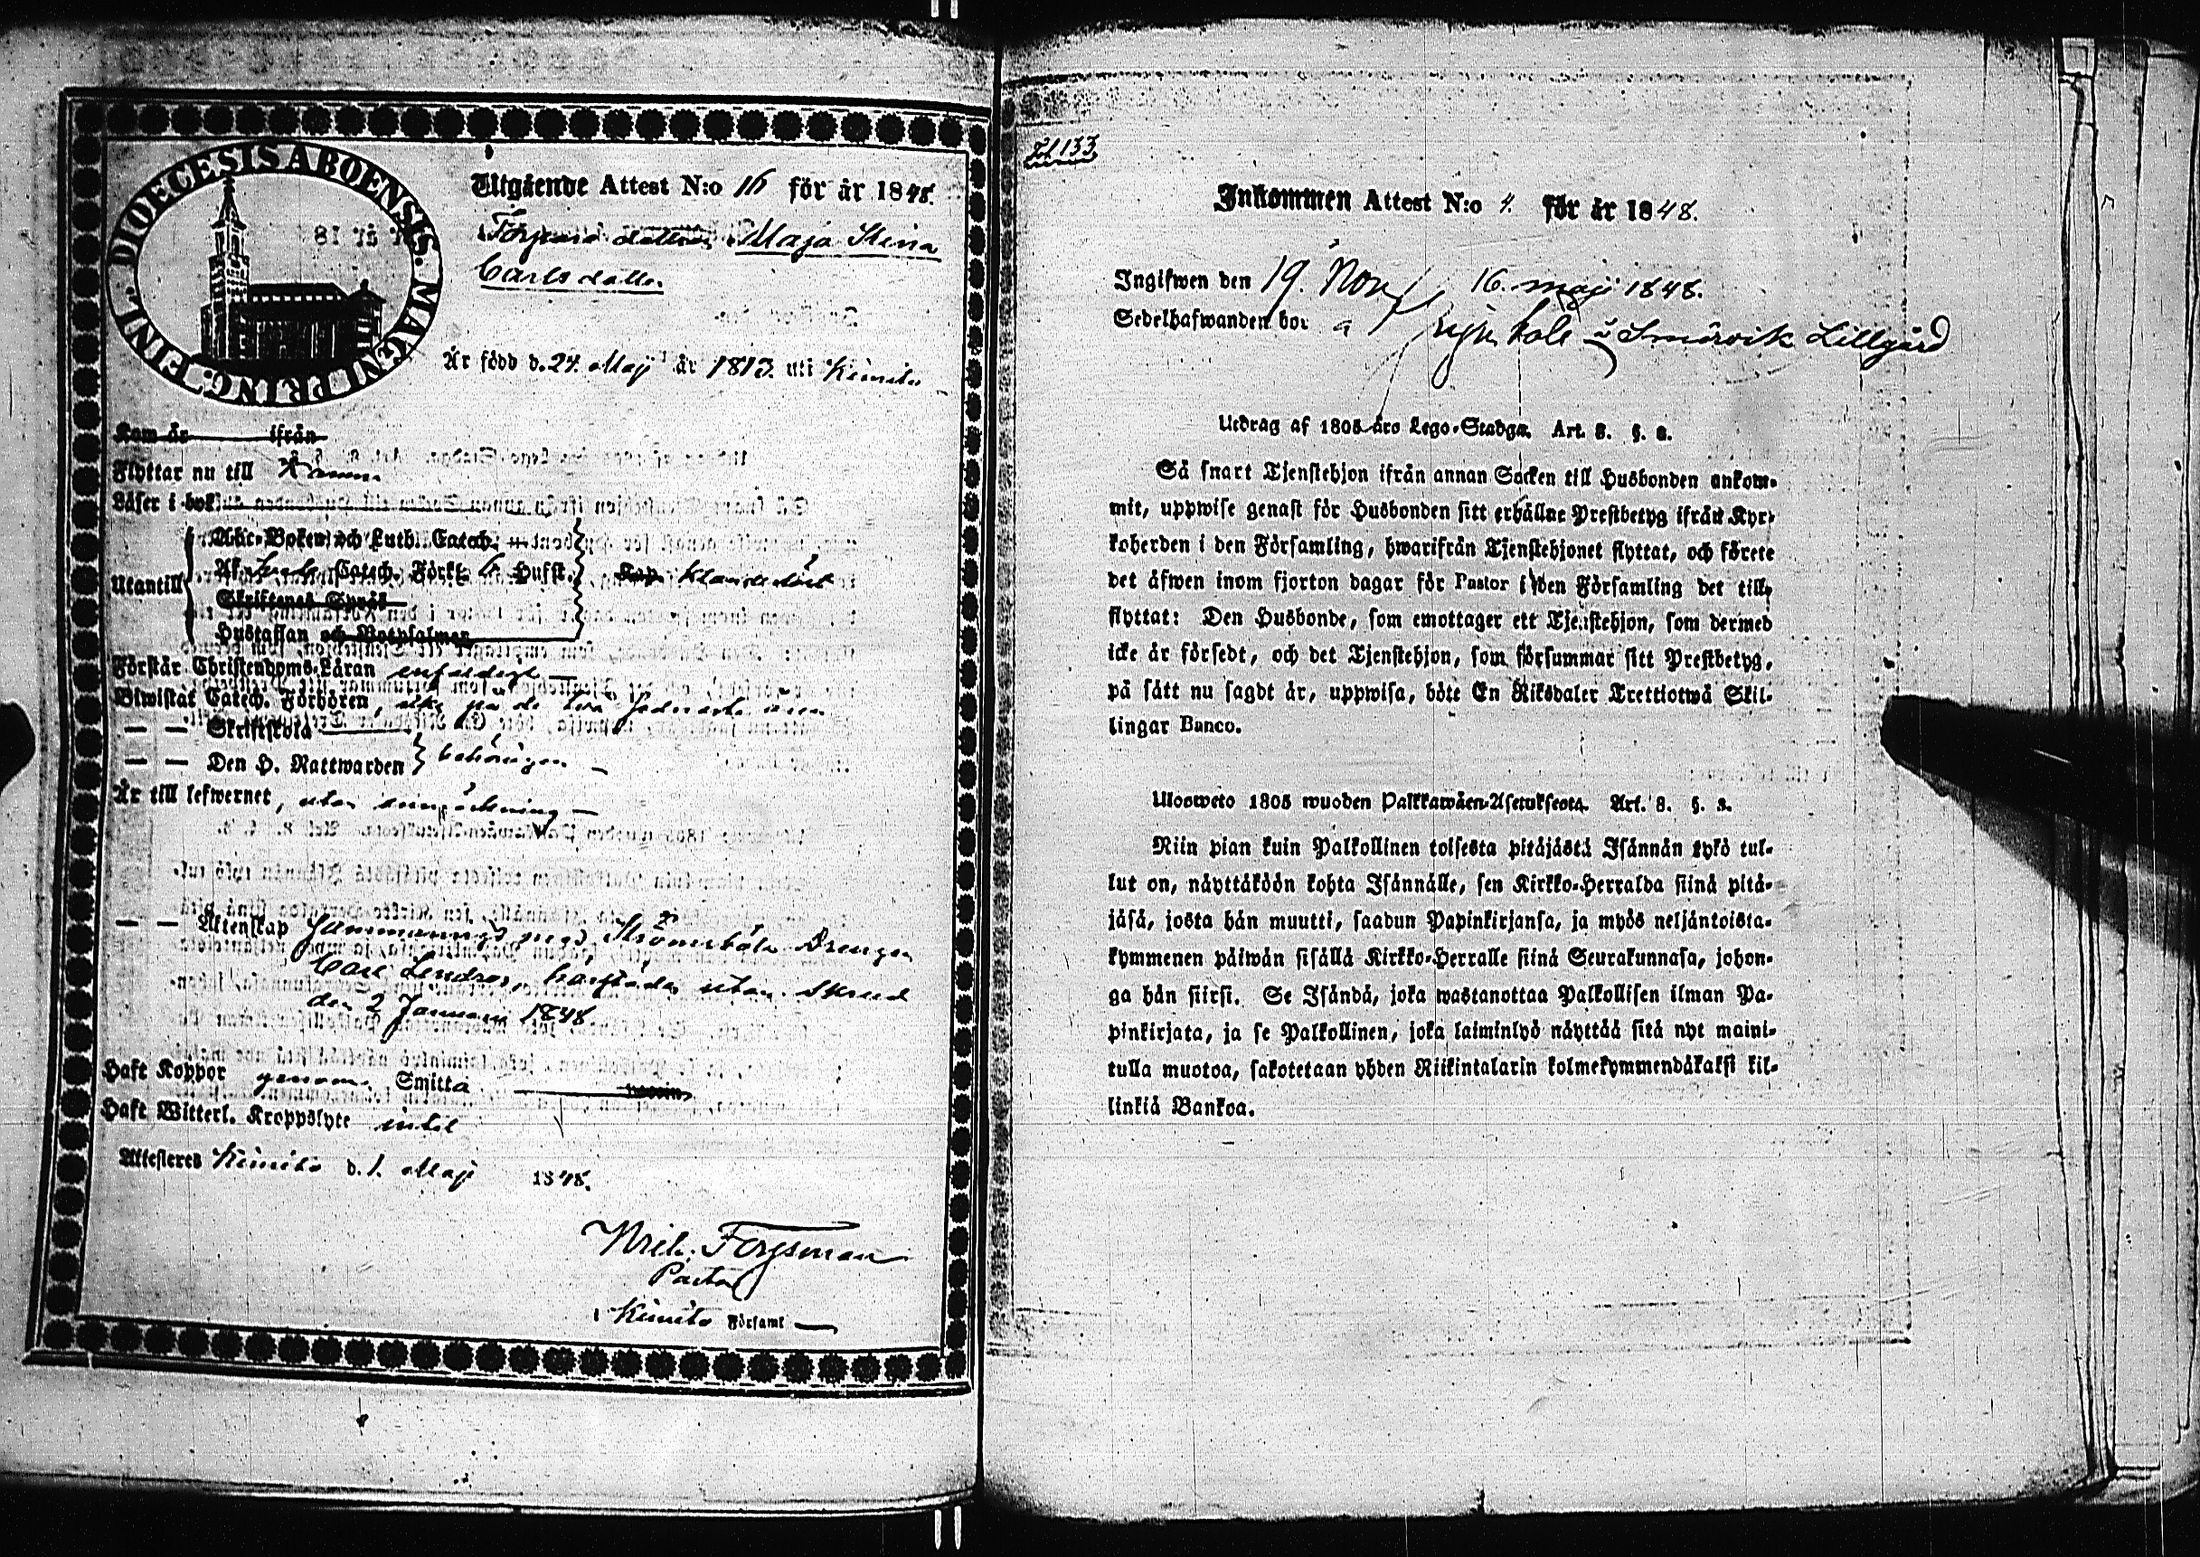 FINL. DIOECESIS ABOENSIS. MAGNI PRING.
Utgående Attest N:o 16 för år 1848.
Maja Stina
Carlsdotter
Är född d. 24. Maji år 1813. uti Kimito
Kom år ifrån
Flyttar nu till
Läser i bok
Utantill
Abc-Boken och Luth. Catech.
Af Catech. Förkl. 6 Hufst.
Skriftenes Språk
Hustaflan och Botpsalmer
Förstår Christendoms-Läran enfaldigt
Biwistat Catech. Förhören, icke på de två sednaste åren
— — Skriftskola
— — Den H. Nattwarden } behörigen
Är till lefwernet, utan anmärkning
— — Äktenskap Sammanvigd med Strömsböle Drengen
Carl Lindros, utan
den 2 Januari 1848
Haft Koppor genom Smitta
Haft Witterl. Kroppslyte intet
Attesteras Kimito d. 1. Maji 1848.
Forssman
Pastor
i Kimito Församl
Fol 133
Inkommen Attest N:o 4. för år 1848.
Ingifwen den 19. Nov 16. maji 1848.
Sedelhafwanden bor å Smörvik Lillgård
Utdrag af 1805 års Lego-Stadga. Art. 8. §. 2.
Så snart Tjenstehjon ifrån annan Socken till Husbonden ankom-
mit, uppwise genast för Husbonden sitt erhållne Prestbetyg ifrån Kyr-
koherden i den Församling, hwarifrån Tjenstehjonet flyttat, och förete
det äfwen inom fjorton dagar för Pastor i den Församling det till-
flyttat: Den Husbonde, som emottager ett Tjenstehjon, som dermed
icke är försedt, och det Tjenstehjon, som försummar sitt Prestbetyg,
på sätt nu sagdt är, uppwisa, böte En Riksdaler Trettiotwå Skil-
lingar Banco.
Ulosweto 1805 wuoden Palkkawäen-Asetuksesta. Art. 8. §. 2.
Niin pian kuin Palkollinen toisesta pitäjästä Isännän tykö tul-
lut on, näyttäköön kohta Isännälle, sen Kirkko-Herralda siinä pitä-
jäsä, josta hän muutti, saadun Papinkirjansa, ja myös neljäntoista-
kymmenen päiwän sisällä Kirkko-Herralle siinä Seurakunnasa, johon-
ga hän siirsi. Se Isändä, joka wastanottaa Palkollisen ilman Pa-
pinkirjata, ja se Palkollinen, joka laiminlyö näyttää sitä nyt maini-
tulla muotoa, sakotetaan yhden Riikintalarin kolmekymmendäkaksi kil-
linkiä Bankoa.